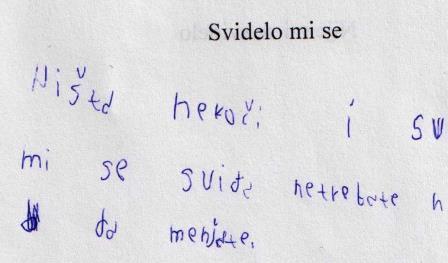 Svidelo mi se
Ništa nekoči i sv
mi se sviđa netrebate n
da menjate.